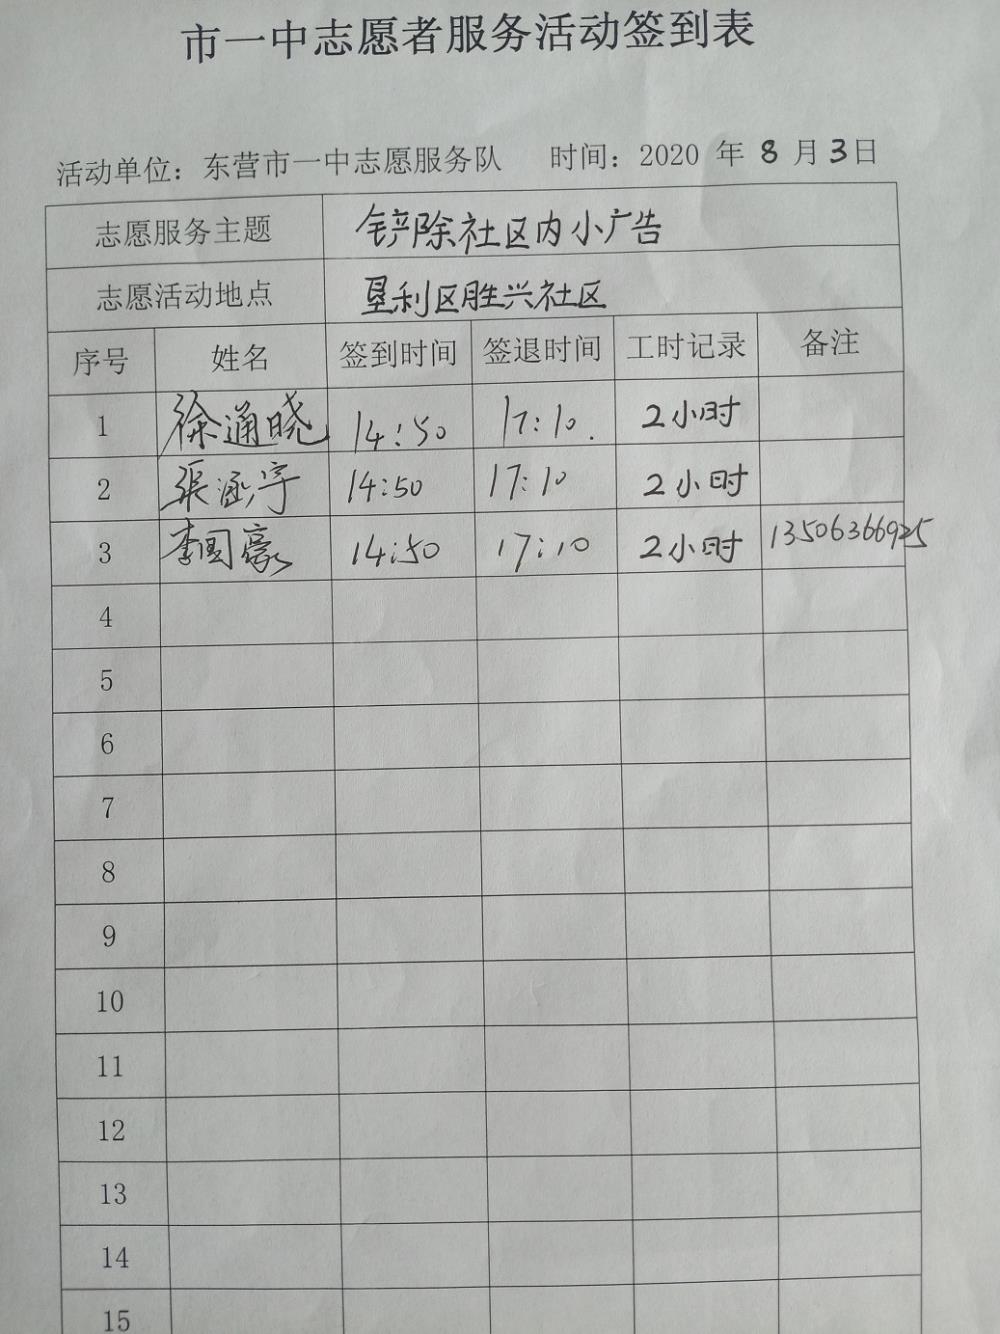 市一中志愿者服务活动签到表
活动单位：东营市一中志愿服务队 时间：2020 年 8 月 3 日
志愿服务主题 铲除社区内小广告
志愿活动地点 垦利区胜兴社区
序号 姓名 签到时间 签退时间 工时记录 备注
1 徐通晓 14:50 17:10. 2小时
2 張涵宇 14:50 17:10 2小时
3 李国豪 14:50 17:10 2小时 13506366925
4
5
6
7
8
9
10
11
12
13
14
15